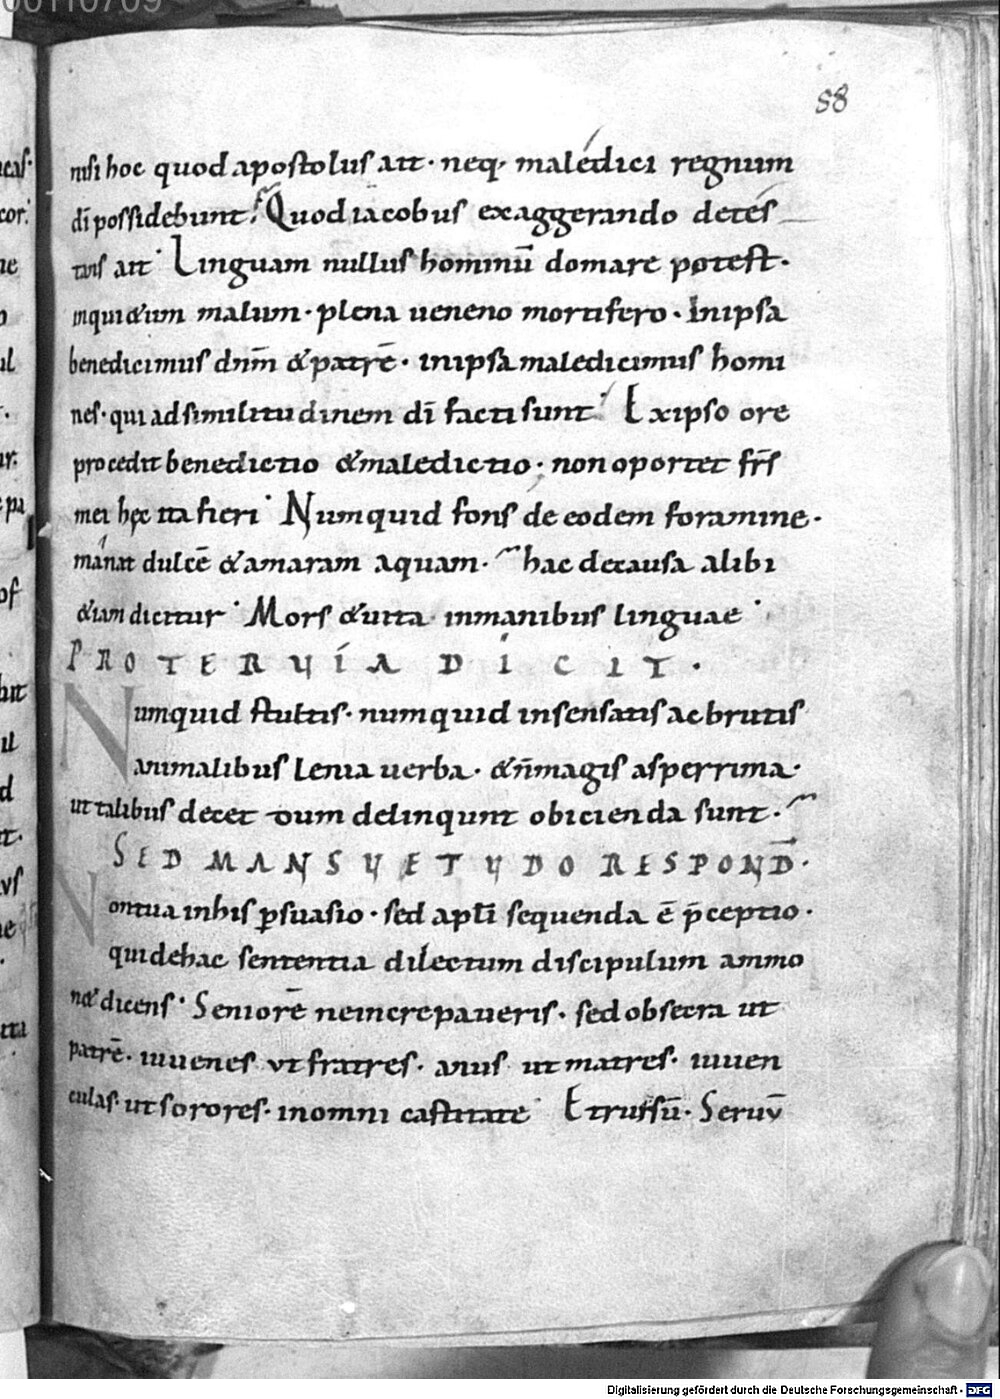 00110709
58
nisi hoc quod apostolus ait · neq· maledici regnum
dī possidebunt; Quod iacobus exaggerando detes
tans ait· Linguam nullus hominū domare potest·
inqui&um malum · plena ueneno mortifero · Inipsa
benedicimus dnm̄ &patrē · inipsa maledicimus homi
nes · qui adsimilitudinem dī facti sunt· Exipso ore
procedit benedictio &maledictio · non oportet frs̄
mei hęc ita fieri· Numquid fons de eodem foramine·
manat dulcē &amaram aquam· hac decausa alibi
&iam dicitur· Mors &uita inmanibus linguae·
PROTERUIA DICIT·
Numquid stultis · numquid insensatis ac brutis
animalibus lenia uerba · &n̄magis asperrima·
ut talibus decet dum delinqunt obicienda sunt·
SED MANSUETUDO RESPOND̄·
Nontua inhis p̱suasio · sed aptī sequenda ē p̄ceptio·
qui dehac sententia dilectum discipulum ammo
n& dicens· Seniorē neincrepaueris · sed obsecra ut
patrē · iuuenes ut fratres · anus ut matres · iuuen
culas · ut sorores · inomni castitate· Etrursū · Seruū
Digitalisierung gefördert durch die Deutsche Forschungsgemeinschaft - DFG